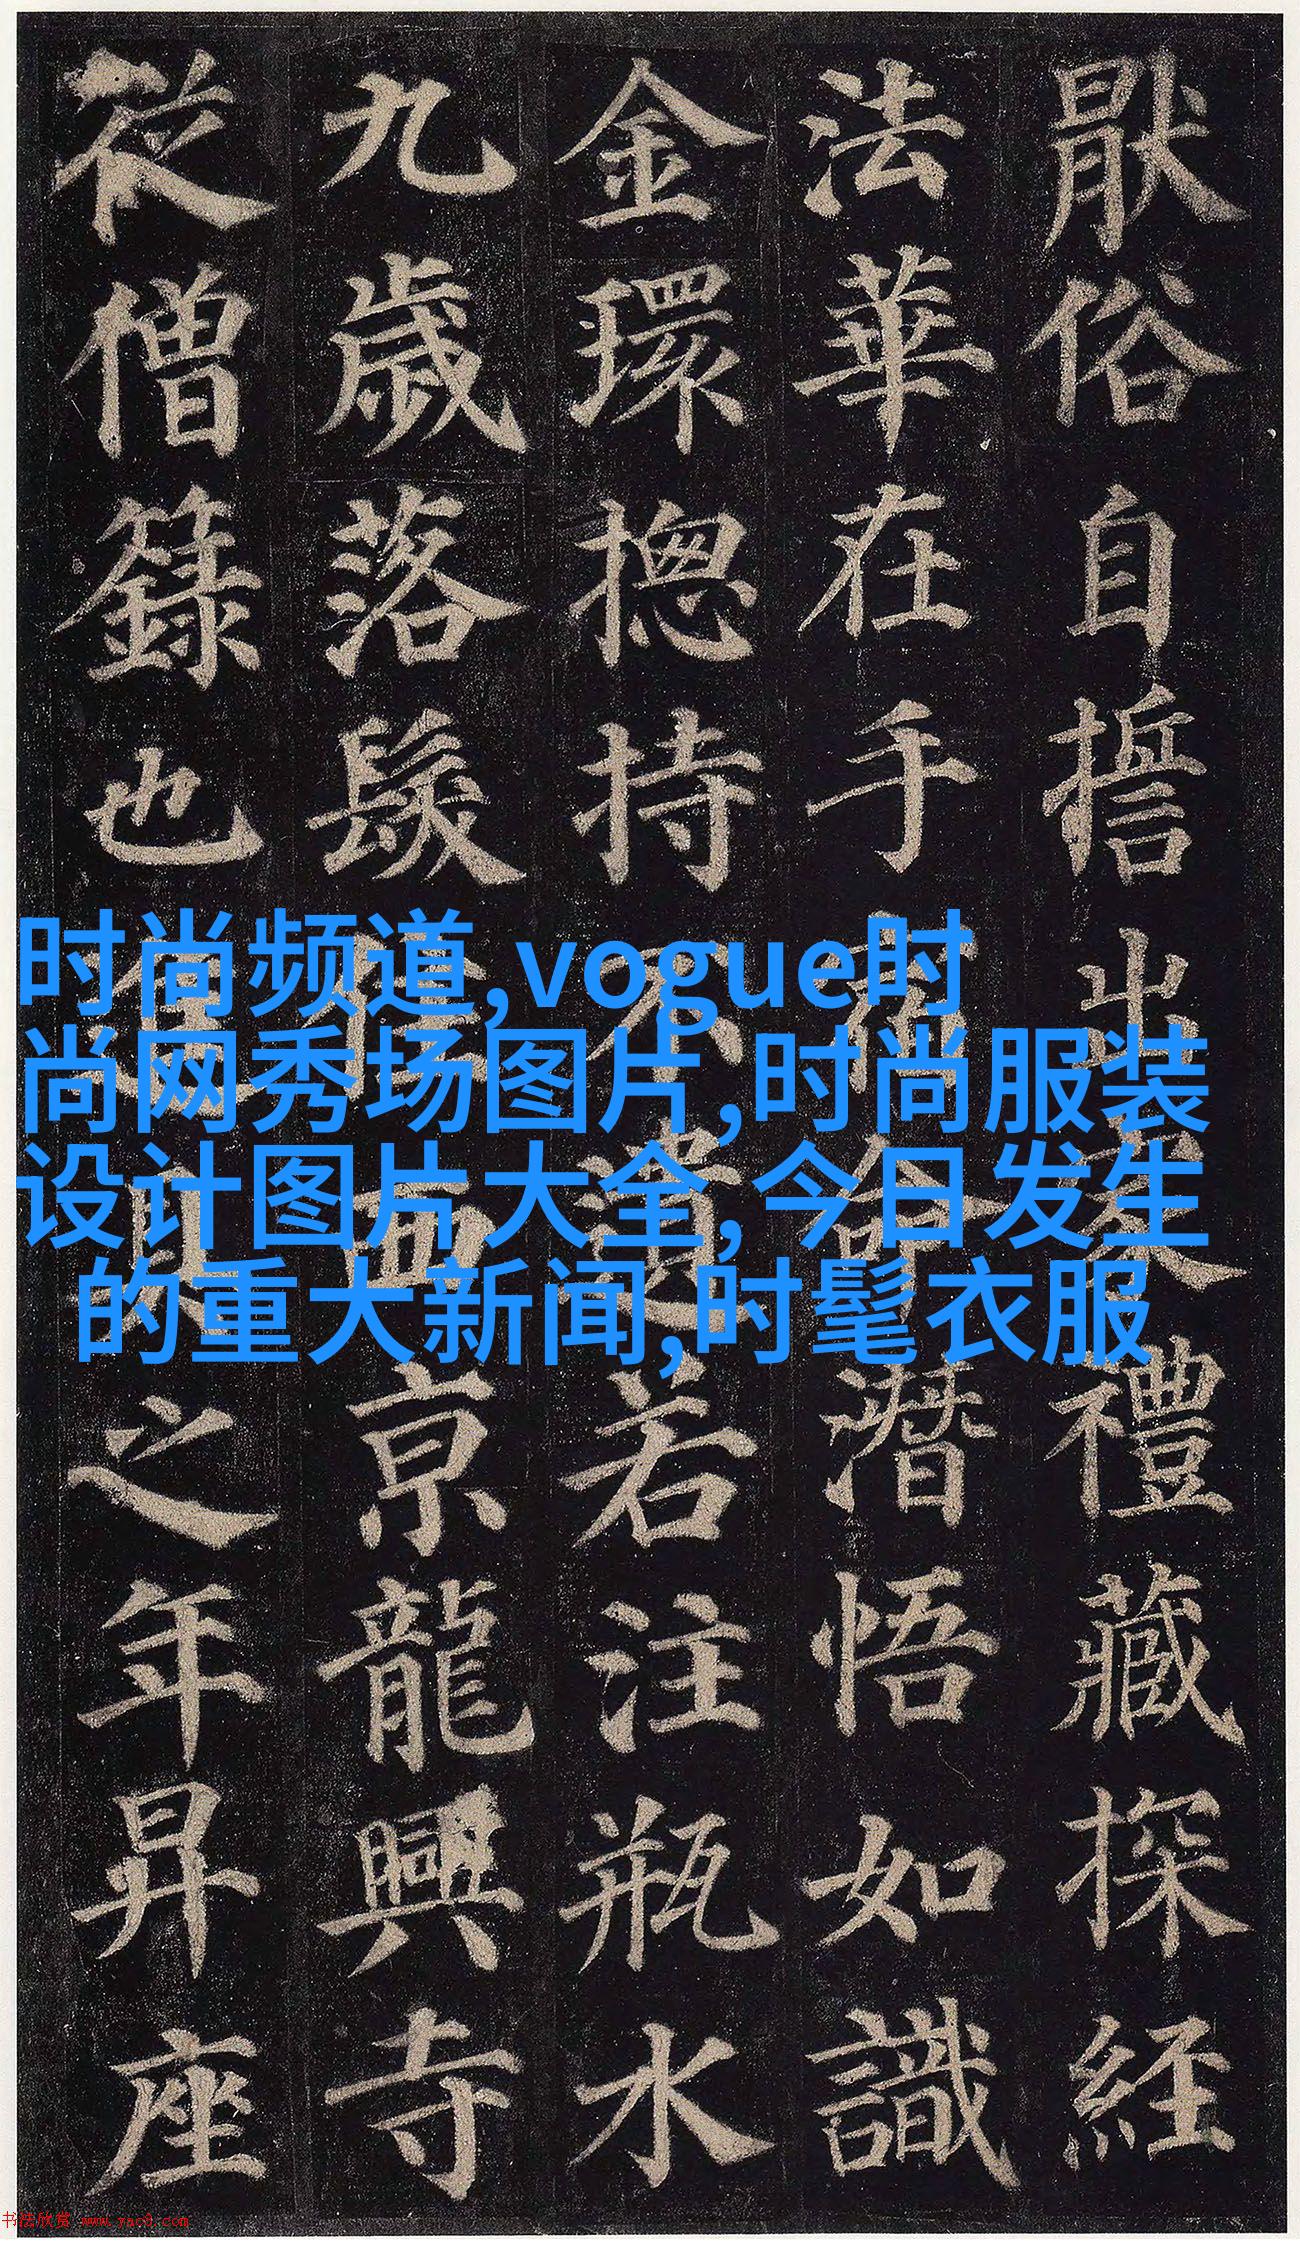 猒俗自誓出家禮藏探經
法華在手宿命潛悟如識
金環揔持不遺若注瓶水
九歲落髮住西京龍興寺
從僧籙也進具之年昇座
时尚频道,vogue时
尚网秀场图片,时尚服装
设计图片大全,今日发生
的重大新闻,时髦衣服
书法欣赏 www.yac8.com